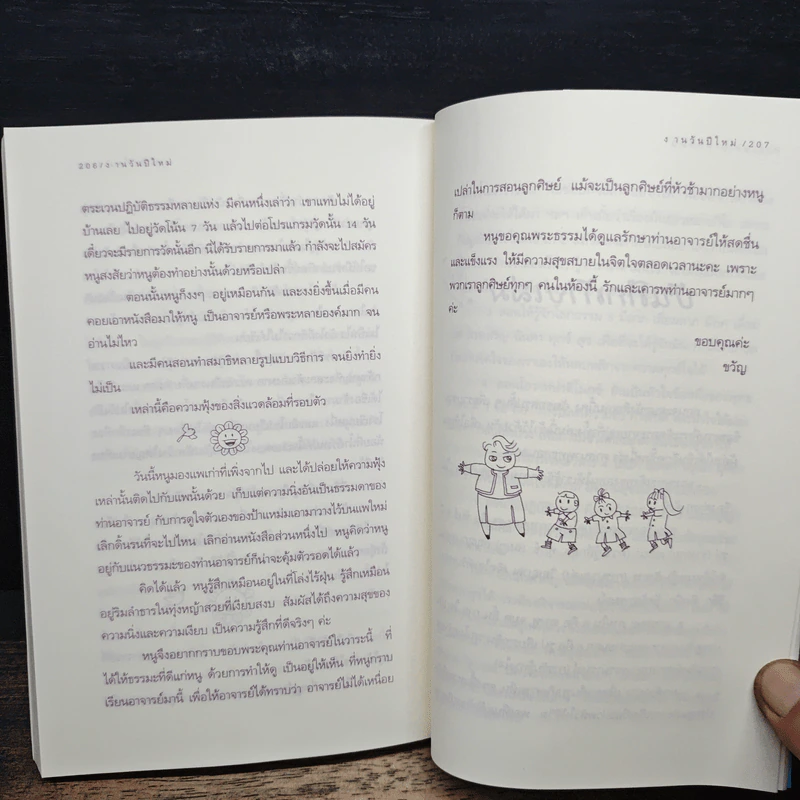 206/งานวันปีใหม่
ตระเวนปฏิบัติธรรมหลายแห่ง มีคนหนึ่งเล่าว่า เขาแทบไม่ได้อยู่
บ้านเลย ไปอยู่วัดโน้น 7 วัน แล้วไปต่อโปรแกรมวัดนั้น 14 วัน
เดี๋ยวจะมีรายการวัดนั้นอีก นี่ได้รับรายการมาแล้ว กำลังจะไปสมัคร
หนูสงสัยว่าหนูต้องทำอย่างนั้นด้วยหรือเปล่า
ตอนนั้นหนูก็งงๆ อยู่เหมือนกัน และงงยิ่งขึ้นเมื่อมีคน
คอยเอาหนังสือมาให้หนู เป็นอาจารย์หรือพระหลายองค์มาก จน
อ่านไม่ไหว
และมีคนสอนทำสมาธิหลายรูปแบบวิธีการ จนยิ่งทำยิ่ง
ไม่เป็น
เหล่านี้คือความฟุ้งของสิ่งแวดล้อมที่รอบตัว
วันนี้หนูมองแพเก่าที่เพิ่งจากไป และได้ปล่อยให้ความฟุ้ง
เหล่านั้นติดไปกับแพนั้นด้วย เก็บแต่ความนิ่งอันเป็นธรรมดาของ
ท่านอาจารย์ กับการดูใจตัวเองของป้าแหม่มเอามาวางไว้บนแพใหม่
เลิกดิ้นรนที่จะไปไหน เลิกอ่านหนังสือส่วนหนึ่งไป หนูคิดว่าหนู
อยู่กับแนวธรรมะของท่านอาจารย์ก็น่าจะคุ้มตัวรอดได้แล้ว
คิดได้แล้ว หนูรู้สึกเหมือนอยู่ในที่โล่งไร้ฝุ่น รู้สึกเหมือน
อยู่ริมลำธารในทุ่งหญ้าสวยที่เงียบสงบ สัมผัสได้ถึงความสุขของ
ความนิ่งและความเงียบ เป็นความรู้สึกที่ดีจริงๆ ค่ะ
หนูจึงอยากกราบขอบพระคุณท่านอาจารย์ในวาระนี้ ที่
ได้ให้ธรรมะที่ดีแก่หนู ด้วยการทำให้ดู เป็นอยู่ให้เห็น ที่หนูกราบ
เรียนอาจารย์มานี้ เพื่อให้อาจารย์ได้ทราบว่า อาจารย์ไม่ได้เหนื่อย
งานวันปีใหม่ /207
เปล่าในการสอนลูกศิษย์ แม้จะเป็นลูกศิษย์ที่หัวช้ามากอย่างหนู
ก็ตาม
หนูขอคุณพระธรรมได้ดูแลรักษาท่านอาจารย์ให้สดชื่น
และแข็งแรง ให้มีความสุขสบายในจิตใจตลอดเวลานะคะ เพราะ
พวกเราลูกศิษย์ทุกๆ คนในห้องนี้ รักและเคารพท่านอาจารย์มากๆ
ค่ะ
ขอบคุณค่ะ
ขวัญ